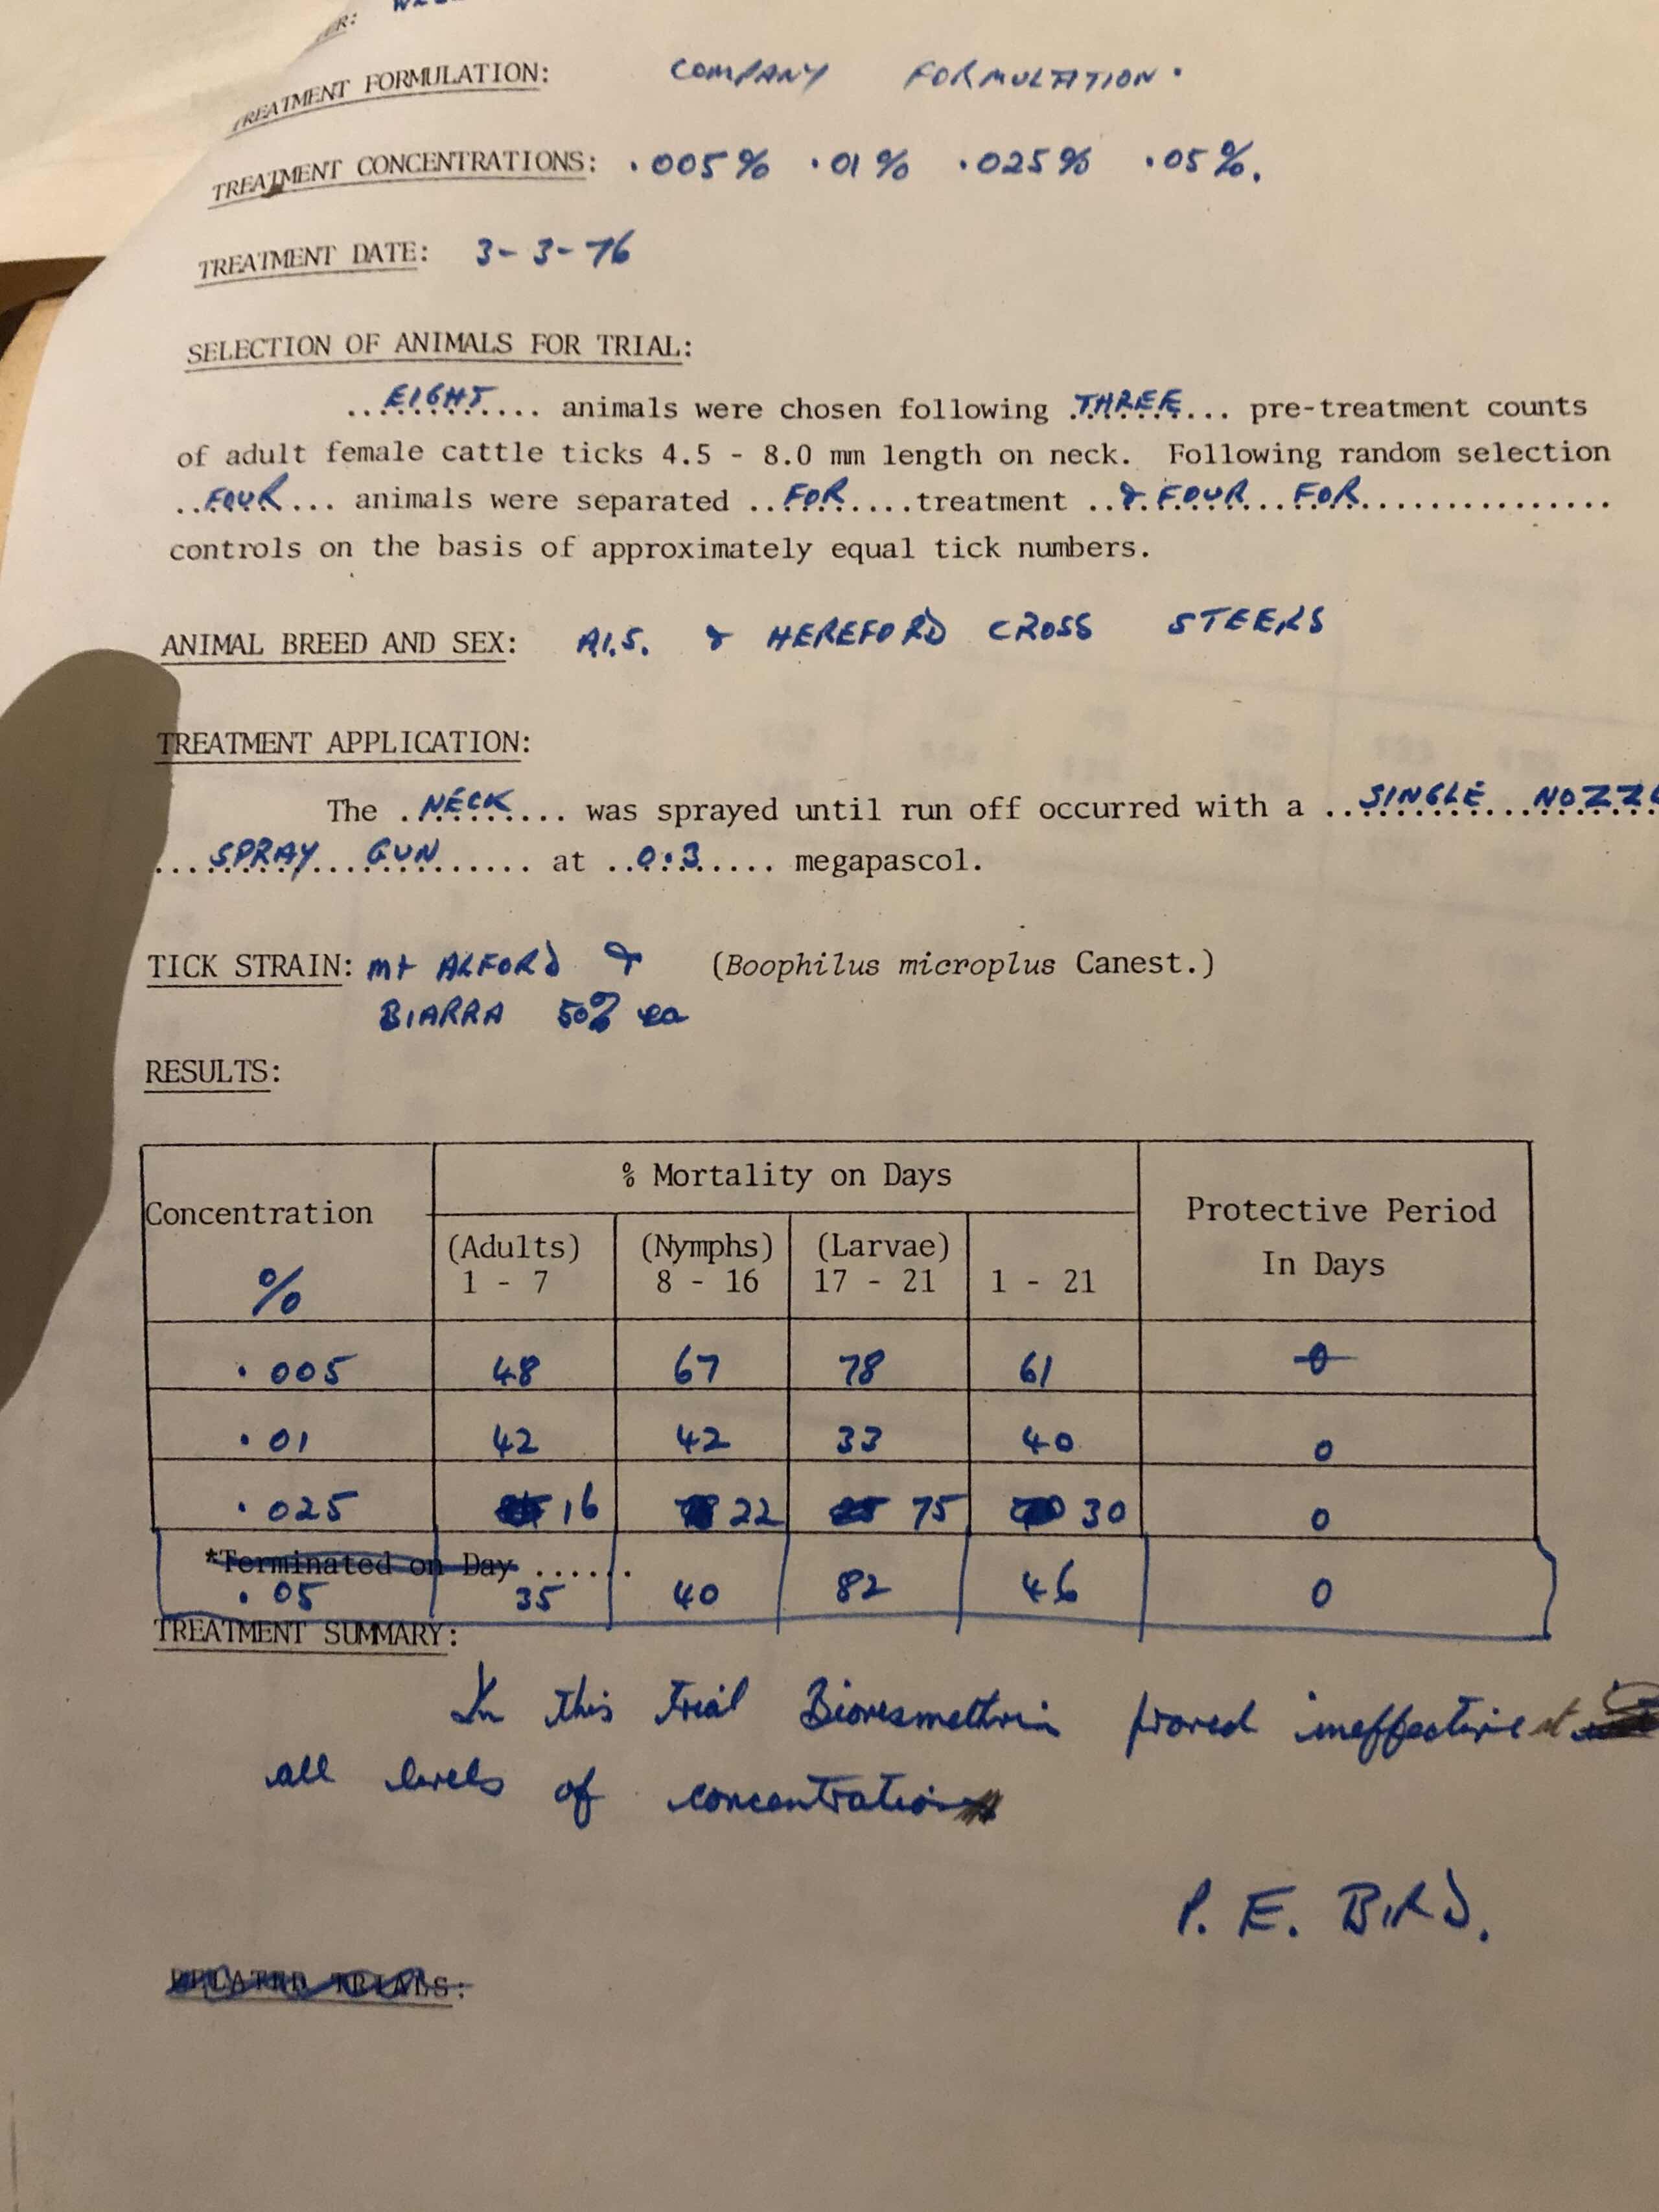 ER:
TREATMENT FORMULATION: COMPANY FORMULTATION.
TREATMENT CONCENTRATIONS: .005% .01% .025% .05%.
TREATMENT DATE: 3-3-76
SELECTION OF ANIMALS FOR TRIAL:
...EIGHT... animals were chosen following .THREE... pre-treatment counts
of adult female cattle ticks 4.5 - 8.0 mm length on neck. Following random selection
..FOUR... animals were separated ..FOR.....treatment ..& FOUR...FOR...............
controls on the basis of approximately equal tick numbers.
ANIMAL BREED AND SEX: A.I.S. & HEREFORD CROSS STEERS
TREATMENT APPLICATION:
The .NECK..... was sprayed until run off occurred with a ..SINGLE...NOZZL
...SPRAY...GUN...... at ..0.3..... megapascol.
TICK STRAIN: Mt ALFORD & (Boophilus microplus Canest.)
BIARRA 50% ea
RESULTS:
% Mortality on Days
Concentration Protective Period
(Adults) (Nymphs) (Larvae) In Days
% 1 - 7 8 - 16 17 - 21 1 - 21
.005 48 67 78 61 0
.01 42 42 33 40 0
.025 16 22 75 30 0
*Terminated on Day ......
.05 35 40 82 46 0
TREATMENT SUMMARY:
In this trial Bioresmethrin proved ineffective at
all levels of concentration
P. E. BIRD.
RELATED TRIALS: